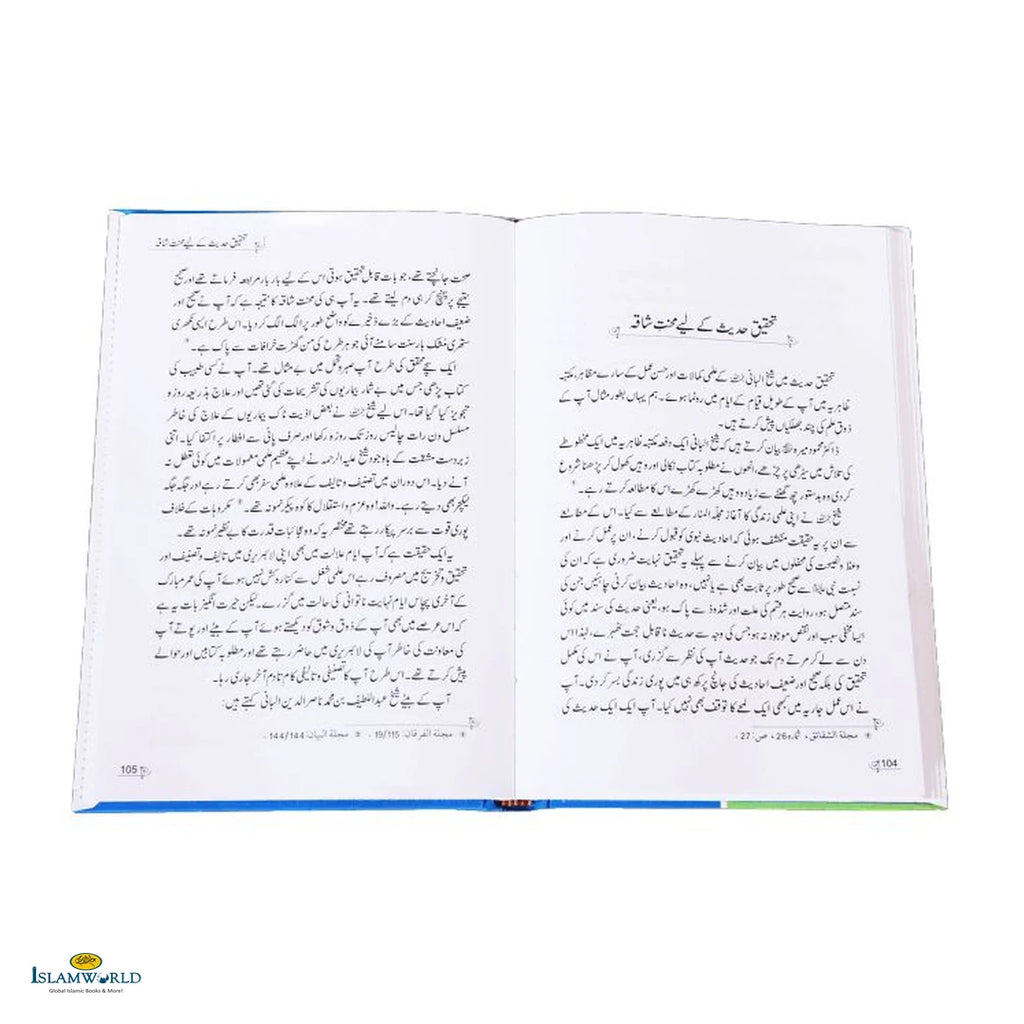 تحقیق حدیث کے لیے محنتِ شاقہ
تحقیق حدیث میں شیخ البانی رحمہ اللہ کے علمی کمالات اور حسن عمل کے سارے مظاہر، مکتبہ
ظاہریہ میں آپ کے طویل قیام کے ایام میں رونما ہوئے۔ ہم یہاں بطور مثال آپ کے
ذوق علم کی چند جھلکیاں پیش کرتے ہیں۔
ڈاکٹر محمود میرہ بیان کرتے ہیں کہ شیخ البانی ایک دفعہ مکتبہ ظاہریہ میں ایک مخطوطے
کی تلاش میں سیڑھی پر چڑھے، انھوں نے مطلوبہ کتاب نکالی اور وہیں کھول کر پڑھنا شروع
کر دی وہ بدستور چھ گھنٹے سے زیادہ وہیں کھڑے کھڑے اس کا مطالعہ کرتے رہے۔
شیخ رحمہ اللہ نے اپنی علمی زندگی کا آغاز مجلہ المنار کے مطالعے سے کیا۔ اس کے مطالعے
سے ان پر یہ حقیقت منکشف ہوئی کہ احادیث نبوی کو قبول کرنے، ان پر عمل کرنے اور
وعظ و نصیحت کی محفلوں میں بیان کرنے سے پہلے یہ تحقیق نہایت ضروری ہے کہ ان کی
نسبت نبی سے صحیح طور پر ثابت بھی ہے یا نہیں، وہ احادیث بیان کرنی چاہئیں جن کی
سند متصل ہو، روایت ہر قسم کی علت اور شذوذ سے پاک ہو، یعنی حدیث کی سند میں کوئی
ایسا مخفی سبب اور نقص موجود نہ ہو جس کی وجہ سے حدیث ناقابل حجت ٹھہرے، لہٰذا اس
دن سے لے کر مرتے دم تک جو حدیث آپ کی نظر سے گزری، آپ نے اس کی مکمل
تحقیق کی بلکہ صحیح اور ضعیف احادیث کی جانچ پرکھ ہی میں پوری زندگی بسر کر دی۔ آپ
نے اس عمل جاریہ میں کبھی ایک لمحے کا توقف بھی نہیں کیا۔ آپ ایک ایک حدیث کی
مجلة الشقائق، شمارہ 26، ص: 27۔
104
تحقیق حدیث کے لیے محنتِ شاقہ
صحت جانچتے تھے، جو بات قابل تحقیق ہوتی اس کے لیے بار بار مراجعہ فرماتے تھے اور صحیح
نتیجے پر پہنچ کر ہی دم لیتے تھے۔ یہ آپ ہی کی محنت شاقہ کا نتیجہ ہے کہ آپ نے صحیح اور
ضعیف احادیث کے بڑے ذخیرے کو واضح طور پر الگ الگ کر دیا۔ اس طرح ایسی نکھری
ستھری مُشک بار سنت سامنے آئی جو ہر طرح کی من گھڑت خرافات سے پاک ہے۔
ایک سچے محقق کی طرح آپ صبر و تحمل میں بے مثال تھے۔ آپ نے کسی طبیب کی
کتاب پڑھی جس میں بے شمار بیماریوں کی تشریحات کی گئی تھیں اور علاج بذریعہ روزہ
تجویز کیا گیا تھا۔ اس لیے شیخ رحمہ اللہ نے بعض اذیت ناک بیماریوں کے علاج کی خاطر
مسلسل دن رات چالیس روز تک روزہ رکھا اور صرف پانی سے افطار پر اکتفا کیا۔ اتنی
زبردست مشقت کے باوجود شیخ علیہ الرحمہ نے اپنے عظیم علمی معمولات میں کوئی تعطل نہ
آنے دیا۔ اس دوران میں تصنیف و تالیف کے علاوہ علمی سفر بھی کرتے رہے اور جگہ جگہ
لیکچر بھی دیتے رہے۔ واللہ! وہ عزم و استقلال کا کوہ پیکر نمونہ تھے۔ مکروہات کے خلاف
پوری قوت سے برسر پیکار رہتے تھے مختصر یہ کہ وہ عجائبات قدرت کا بے نظیر نمونہ تھے۔
یہ ایک حقیقت ہے کہ آپ ایام علالت میں بھی اپنی لائبریری میں تالیف و تصنیف اور
تحقیق و تخریج میں مصروف رہے اس علمی شغل سے کنارہ کش نہیں ہوئے آپ کی عمر مبارک
کے آخری پچاس ایام نہایت ناتوانی کی حالت میں گزرے۔ لیکن حیرت انگیز بات یہ ہے
کہ اس عرصے میں بھی آپ کے ذوق و شوق کو دیکھتے ہوئے آپ کے بیٹے اور پوتے آپ
کی معاونت کی خاطر آپ کی لائبریری میں حاضر رہتے تھے اور مطلوبہ کتابیں اور حوالے
پیش کرتے تھے۔ اس طرح آپ کا تصنیفی و تالیفی کام تا دم آخر جاری رہا۔
آپ کے بیٹے شیخ عبداللطیف بن محمد ناصر الدین البانی کہتے ہیں:
مجلة الفرقان: 19/115۔ مجلة البیان: 144/144۔
105
ISLAMWORLD
Global Islamic Books & More!